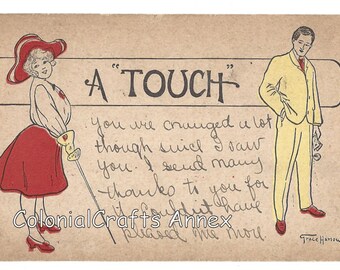 A "TOUCH"
You are changed a lot
though since I saw
you. I send many
thanks to you for
it. Couldn't have
ColonialCrafts Annex
pleased me more.